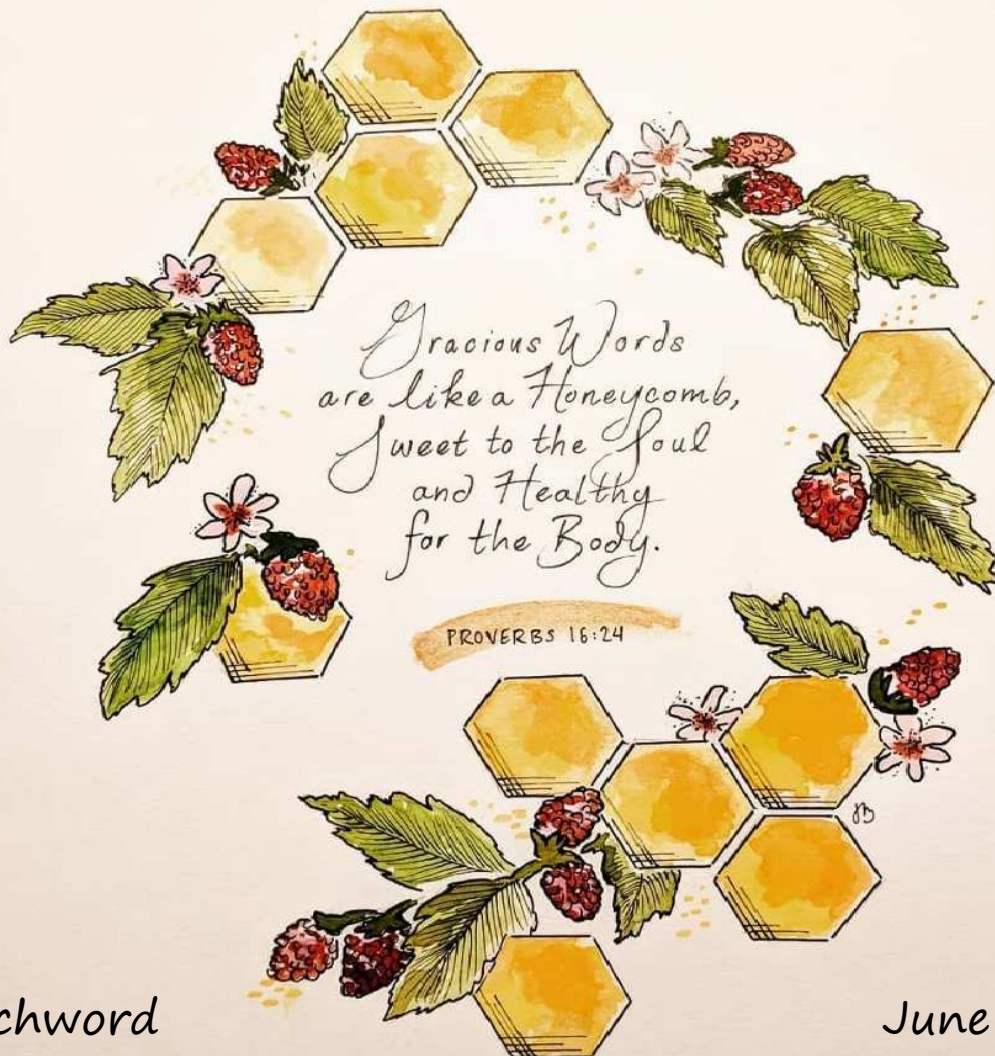 Gracious Words
are like a Honeycomb,
Sweet to the Soul
and Healthy
for the Body.
PROVERBS 16:24
JB
chword
June